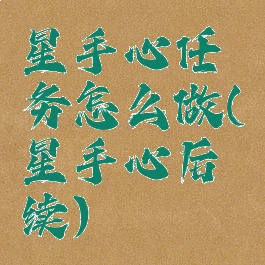 星手心任
务怎么做(
星手心后
续)